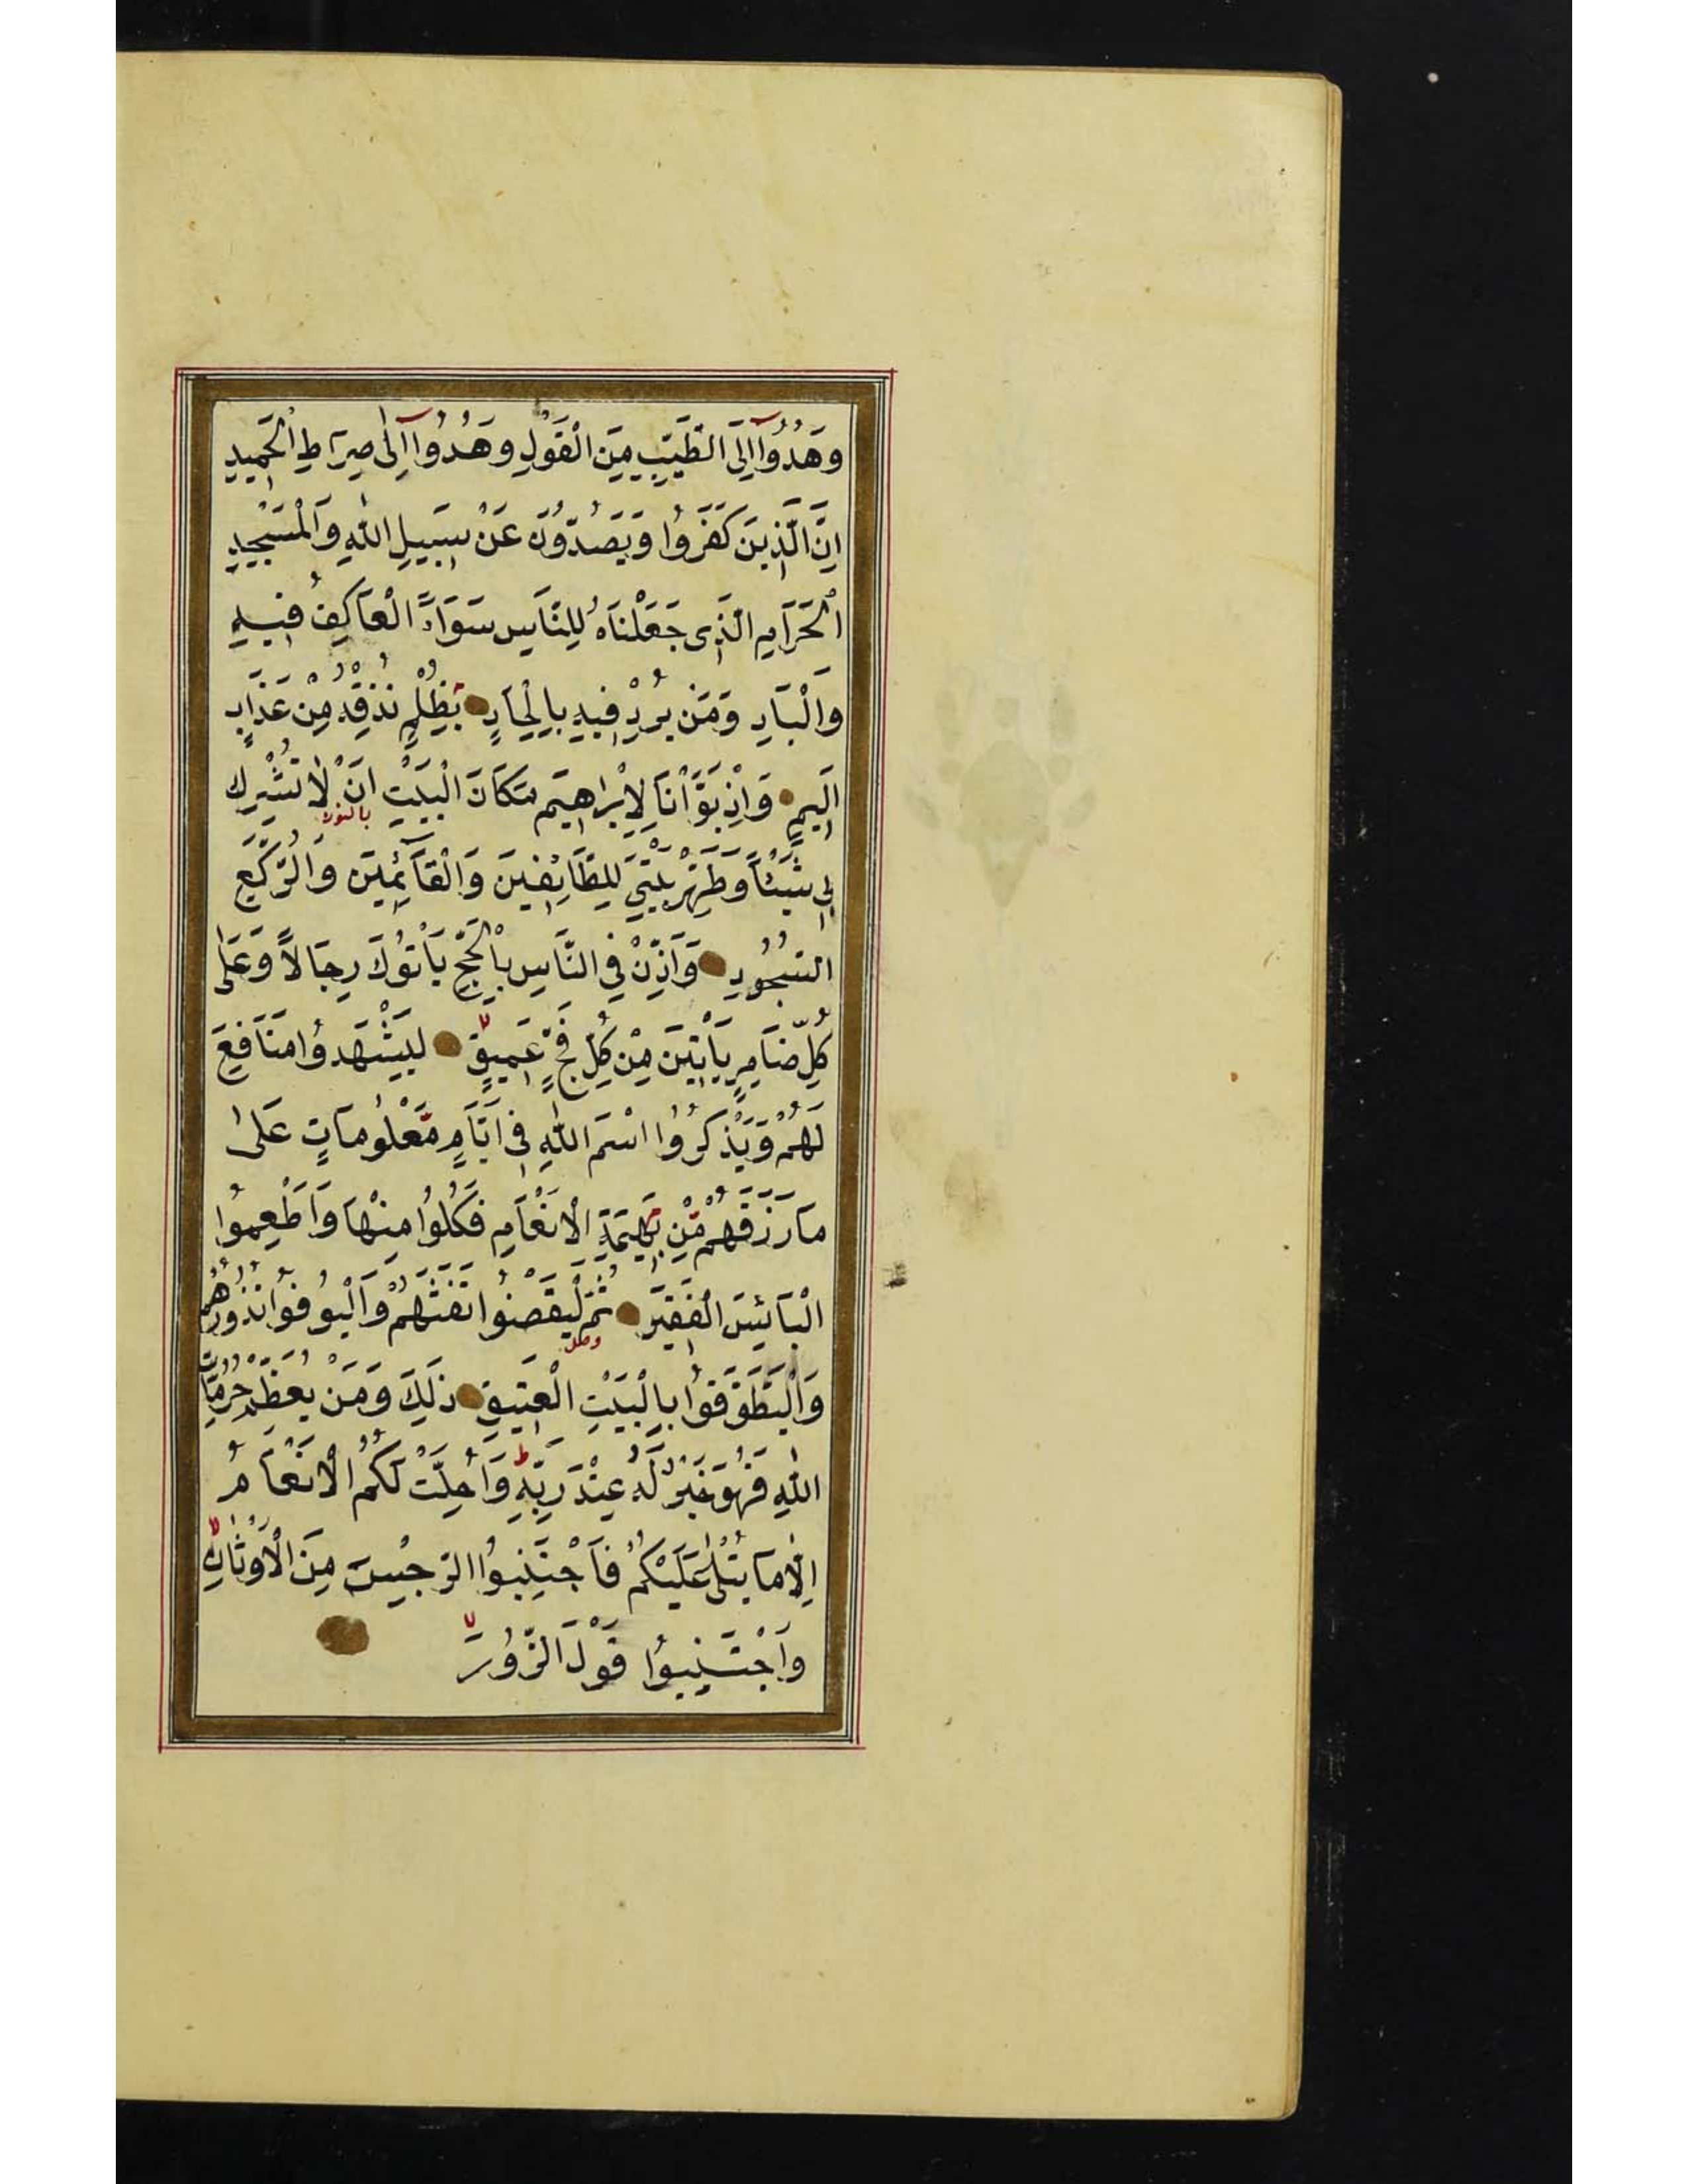 وَهَدُوآ اِلَى الطَّيِّبِ مِنَ الْقَوْلِ وَهُدُوآ اِلٰى صِرَاطِ الْحَمِيدِ
اِنَّ الَّذِينَ كَفَرُوا وَيَصُدُّونَ عَنْ سَبِيلِ اللّٰهِ وَالْمَسْجِدِ
الْحَرَامِ الَّذِى جَعَلْنَاهُ لِلنَّاسِ سَوَاءً الْعَاكِفُ فِيهِ
وَالْبَادِ وَمَنْ يُرِدْ فِيهِ بِاِلْحَادٍ بِظُلْمٍ نُذِقْهُ مِنْ عَذَابٍ
اَلِيمٍ وَاِذْ بَوَّاْنَا لِاِبْرٰاهِيمَ مَكَانَ الْبَيْتِ اَنْ لٰا تُشْرِك
بِى شَيْئًا وَطَهِّرْ بَيْتِيَ لِلطَّائِفِينَ وَالْقَائِمِينَ وَالرُّكَّعِ
السُّجُودِ وَاَذِّنْ فِي النَّاسِ بِالْحَجِّ يَاْتُوكَ رِجَالًا وَعَلٰى
كُلِّ ضَامِرٍ يَاْتِينَ مِنْ كُلِّ فَجٍّ عَمِيقٍ لِيَشْهَدُوا مَنَافِعَ
لَهُمْ وَيَذْكُرُوا اسْمَ اللّٰهِ فِى اَيَّامٍ مَّعْلُومَاتٍ عَلٰى
مَا رَزَقَهُمْ مِّنْ بَهِيمَةِ الْاَنْعَامِ فَكُلُوا مِنْهَا وَاَطْعِمُوا
الْبَائِسَ الْفَقِيرَ ثُمَّ لْيَقْضُوا تَفَثَهُمْ وَالْيُوفُوا نُذُورَهُمْ
وَالْيَطَّوَّفُوا بِالْبَيْتِ الْعَتِيقِ ذٰلِكَ وَمَنْ يُعَظِّمْ حُرُمَاتِ
اللّٰهِ فَهُوَ خَيْرٌ لَهُ عِنْدَ رَبِّهِ وَاُحِلَّتْ لَكُمُ الْاَنْعَامُ
اِلَّا مَا يُتْلٰى عَلَيْكُمْ فَاجْتَنِبُوا الرِّجْسَ مِنَ الْاَوْثَانِ
وَاجْتَنِبُوا قَوْلَ الزُّورِ